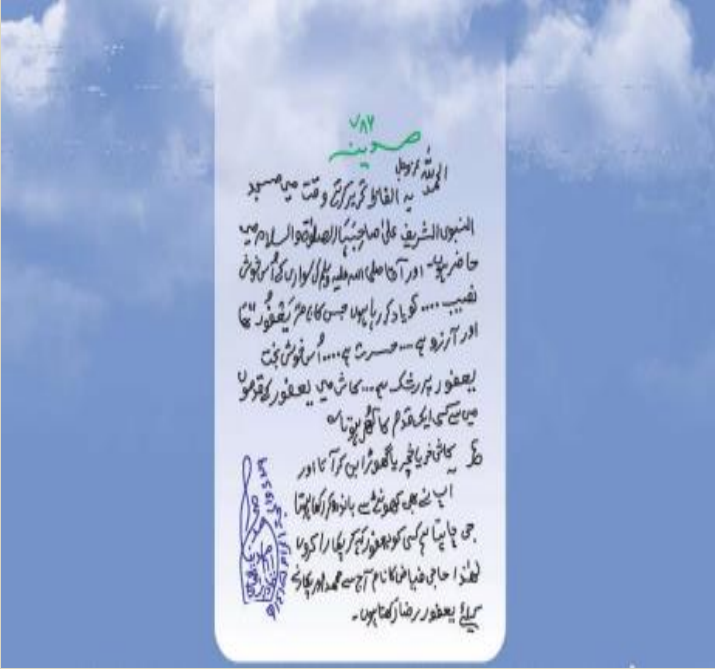 ۷۸۶
مدینہ
الحمدللہ عزوجل
یہ الفاظ تحریر کرتے وقت میں مسجد
النبوی الشریف علیٰ صاحبہا الصلوٰۃ والسلام میں
حاضر ہوں اور آقا صلی اللہ علیہ وسلم کی سواری کے اُس خوش
نصیب .... کو یاد کر رہا ہوں جس کا نام "یَعْفُور" تھا
اور آرزو ہے .... حسرت ہے .... اُس خوش بخت
یعفور پر رشک ہے ... کاش میں یعفور کے قدموں
میں سے کسی ایک قدم کا کُھر ہوتا
کاش خر یا خچر یا گھوڑا بن کر آتا اور
آپ نے بھی کھونٹے سے باندھ کر رکھا ہوتا
جی چاہتا ہے کسی کو یعفور کہہ کر پکارا کروں
لہٰذا حاجی فیاض کا نام آج سے محمد اور پکارنے
کیلئے یعفور رضا رکھتا ہوں۔